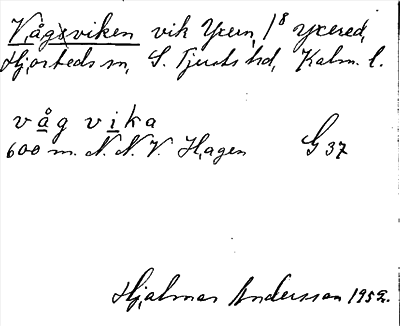 Vågsviken vik Yxern, 1/8 Yxered,
Hjorteds sn, S. Tjusts hd, Kalm. l.
våg vika
600 m. N. N. V. Hagen G 37
Hjalmar Andersson 1952.